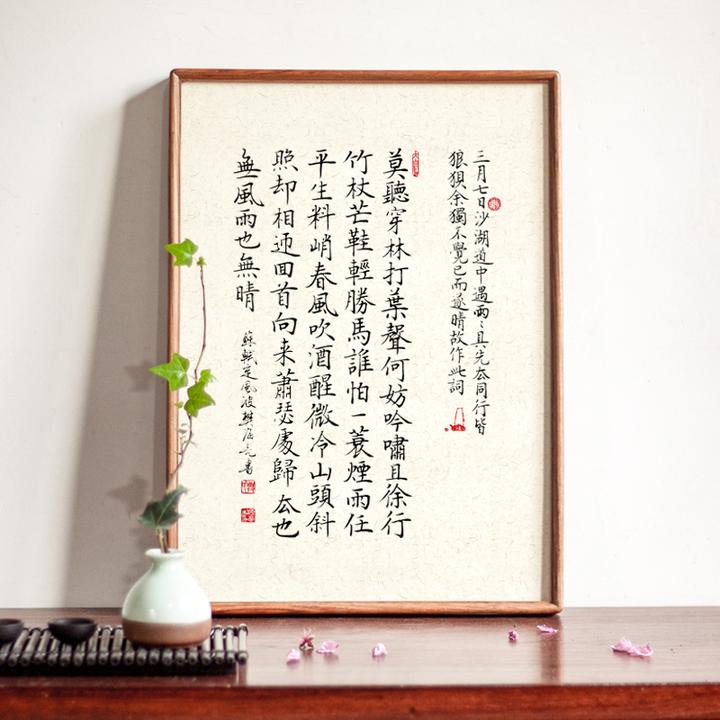 三月七日沙湖道中遇雨〻具先去同行皆
狼狽余獨不覺已而遂晴故作此詞
莫聽穿林打葉聲何妨吟嘯且徐行
竹杖芒鞋輕勝馬誰怕一蓑煙雨任
平生料峭春風吹酒醒微冷山頭斜
照却相迎回首向来蕭瑟處歸去也
無風雨也無晴
蘇軾定風波樊亮書